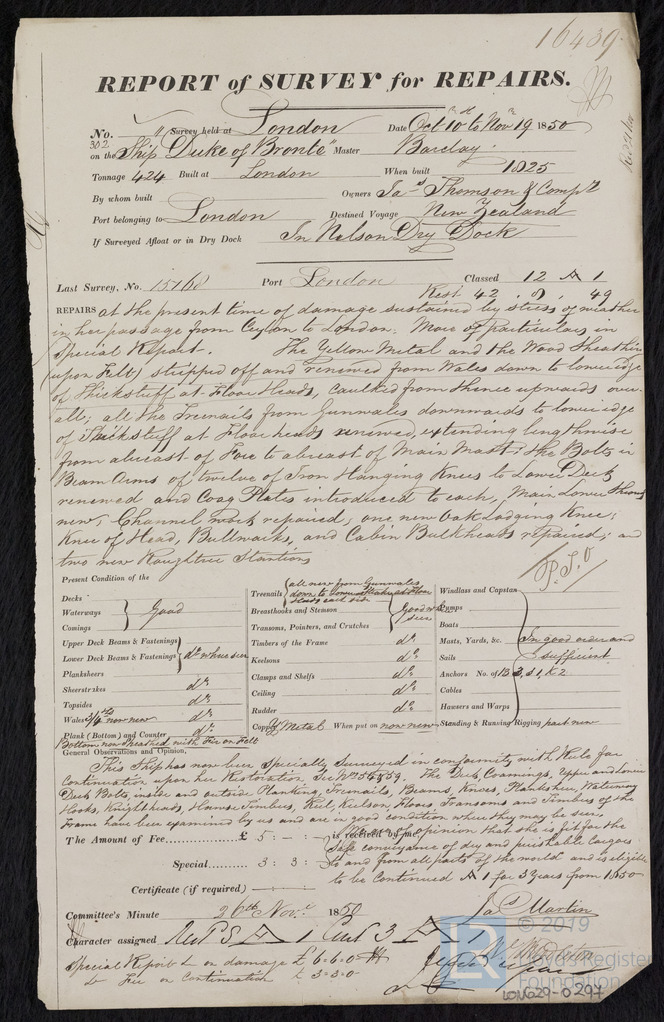 16439
REPORT of SURVEY for REPAIRS.
No. 302 Survey held at London Date Oct 10th to Nov 19 1850
on the Ship "Duke of Bronte" Master Barclay
Tonnage 424 Built at London When built 1825
By whom built Owners Jas Thomson & Compy
Port belonging to London Destined Voyage New Zealand
If Surveyed Afloat or in Dry Dock In Nelson Dry Dock
Last Survey, No. 15768 Port London Classed 12 A 1
Rest 42 49
REPAIRS at the present time of damage sustained by stress of weather
in her passage from Ceylon to London. More particulars in
Special Report. The Yellow Metal and the Wood Sheathing
upon Felt stripped off and renewed from Wales down to lower edge
of Thickstuff at Floor Heads, caulked from thence upwards over
all; all the Treenails from Gunwales downwards to lower edge
of Thickstuff at Floor heads renewed, extending lengthwise
from abreast of Fore to abreast of Main Mast; the Bolts in
Beam Arms of twelve of Iron Hanging Knees to Lower Deck
renewed and Coag Plates introduced to each, Main Lower
new, Channel work repaired; one new Oak Lodging Knee;
Knee of Head, Bullwarks, and Cabin Bulkheads repaired; and
two new Roughtree Stantions
P.T.O
Present Condition of the
Decks
Waterways Good
Comings
Upper Deck Beams & Fastenings
Lower Deck Beams & Fastenings do where seen
Planksheers
Sheerstrakes do
Topsides do
Wales now new do
Plank (Bottom) and Counter do
Bottom now sheathed with Fir on Felt
Treenails all new from Gunwales
down to
Breasthooks and Stemson Good where
Transoms, Pointers, and Crutches seen
Timbers of the Frame do
Keelsons do
Clamps and Shelfs do
Ceiling do
Rudder do
Copper Y Metal When put on now new
Windlass and Capstan
Pumps
Boats
Masts, Yards, &c. In good order and
Sails sufficient
Anchors No. of B 3, S 1, K 2
Cables
Hawsers and Warps
Standing & Running Rigging part new
General Observations and Opinion,
This Ship has now been Specially Surveyed in conformity with Rule for
Continuation upon her Restoration See No The Deck Comings, Upper and Lower
Deck Bolts inside and outside Planking, Treenails, Beams, Knees, Planksheer, Waterway
Hooks, Knightheads, Hawse Timbers, Keel, Keelson, Floors Transoms and Timbers of the
Frame have been examined by us and are in good condition where they may be seen,
opinion that she is fit for the
The Amount of Fee £ 5 : - : - is received by me,
safe conveyance of dry and perishable cargoes
Special 3 : 3 : to and from all parts of the world and is eligible
to be Continued A 1 for 3 Years from 1850
Certificate (if required)
Committee's Minute 26th Novr 1850 Jas Martin
Character assigned A 1 Cont 3 A 1
Special Report & on damage £6=6=0
Do Fee on Continuation £3=3=0
© 2019
LR
Lloyd's Register
Foundation
LON629-0297